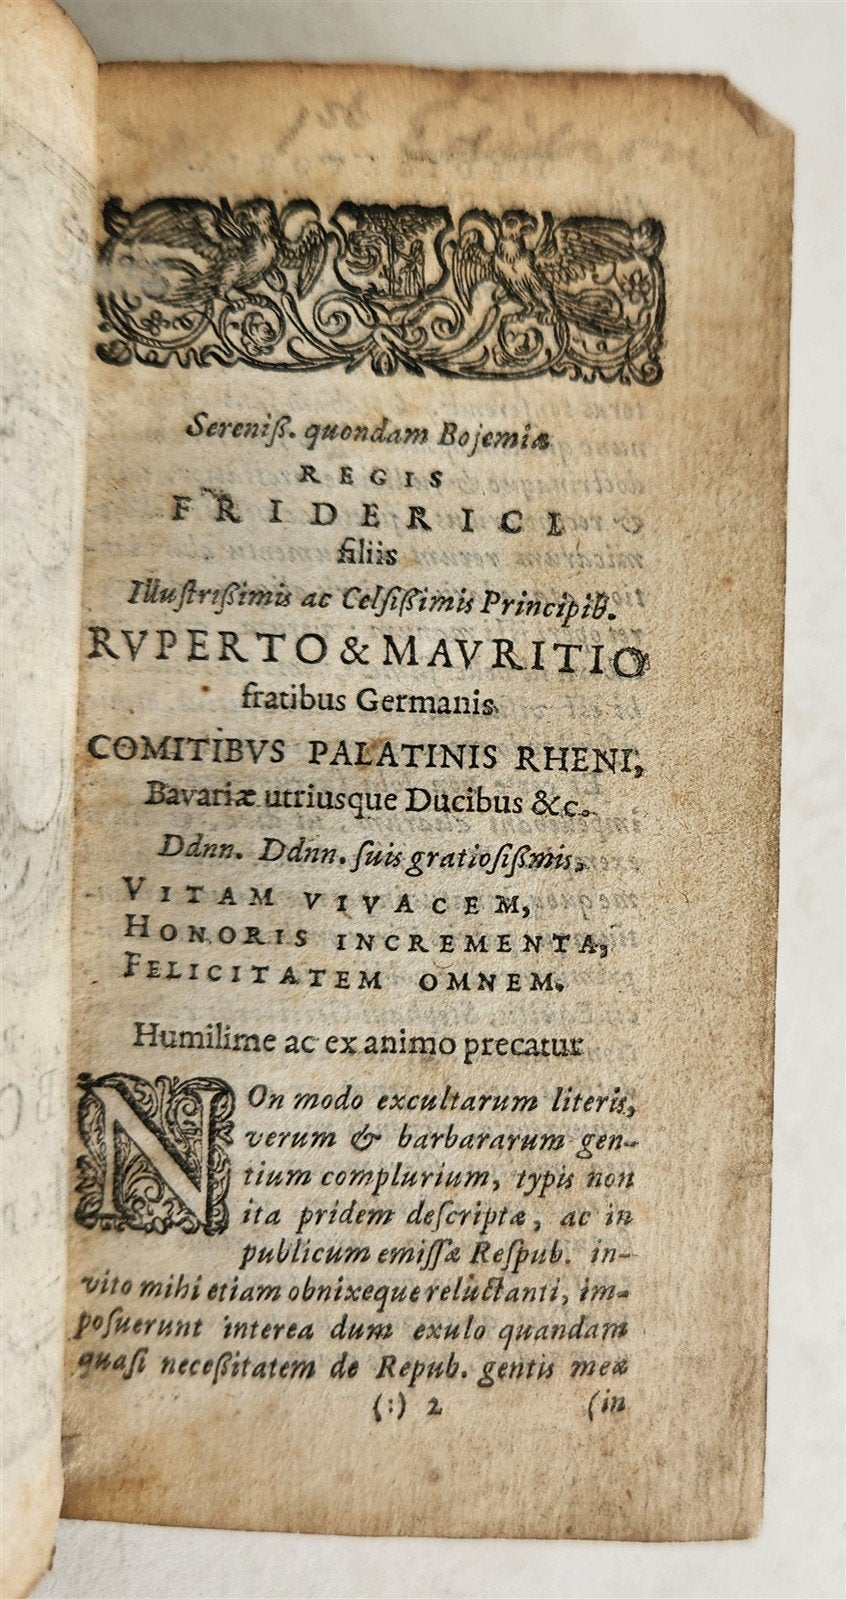 Sereniß. quondam Bojemiæ
REGIS
FRIDERICI
filiis
Illuſtrißimis ac Celſißimis Principib.
RVPERTO & MAVRITIO
fratibus Germanis
COMITIBVS PALATINIS RHENI,
Bavariæ utriusque Ducibus &c.
Ddnn. Ddnn. ſuis gratioſißmis,
VITAM VIVACEM,
HONORIS INCREMENTA,
FELICITATEM OMNEM.
Humilime ac ex animo precatur
NOn modo excultarum literis,
verum & barbararum gen-
tium complurium, typis non
ita pridem deſcriptæ, ac in
publicum emiſſæ Reſpub. in-
vito mihi etiam obnixeque reluctanti, im-
poſuerunt interea dum exulo quandam
quaſi neceßitatem de Repub. gentis meæ
(:) 2 (in